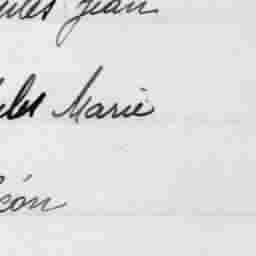 Jules Jean
Jules Marie
Léon